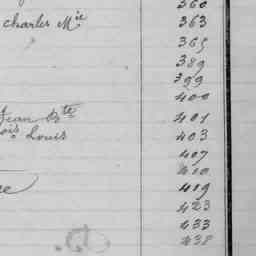 360
charles M^ie 363
365
389
399
400
Jean Bte 401
ois Louis 403
407
410
419
423
433
438